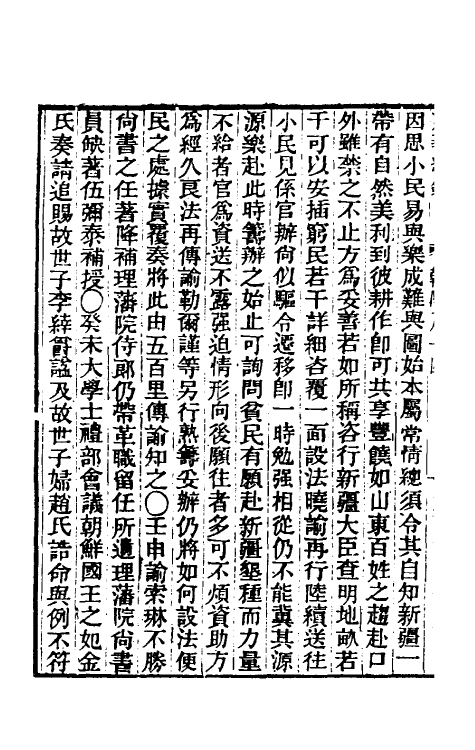 因思小民易與樂成難與圖始本屬常情總須令其自知新疆一
帶有自然美利到彼耕作卽可共享豐饒如山東百姓之趨赴口
外雖禁之不止方爲妥善若如所稱咨行新疆大臣查明地畝若
干可以安插窮民若干詳細咨覆一面設法曉諭再行陸續送往
小民見係官辦何似驅令遷移卽一時勉强相從仍不能冀其源
源樂赴此時籌辦之始止可詢問貧民有願赴新疆墾種而力量
不給者官爲資送不露强迫情形向後願往者多可不煩資助方
爲經久良法再傳諭勒爾謹等另行熟籌妥辦仍將如何設法便
民之處據實覆奏將此由五百里傳諭知之○壬申諭索琳不勝
尙書之任著降補理藩院侍郞仍帶革職留任所遺理藩院尙書
員缺著伍彌泰補授○癸未大學士禮部會議朝鮮國王之妃金
氏奏請追賜故世子李緈爵諡及故世子婦趙氏誥命與例不符